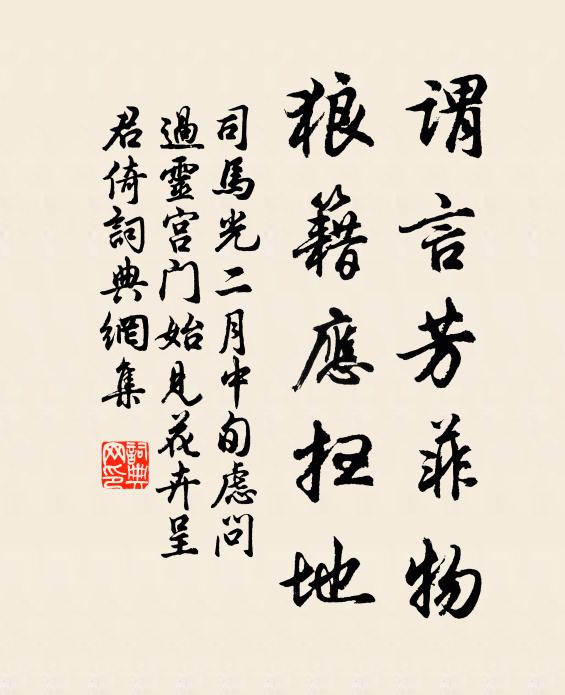 謂言芳菲物
狼籍應扫地
司馬光二月中旬虑问
過靈宫门始见花卉呈
君倚詞典網集
詞典
网印